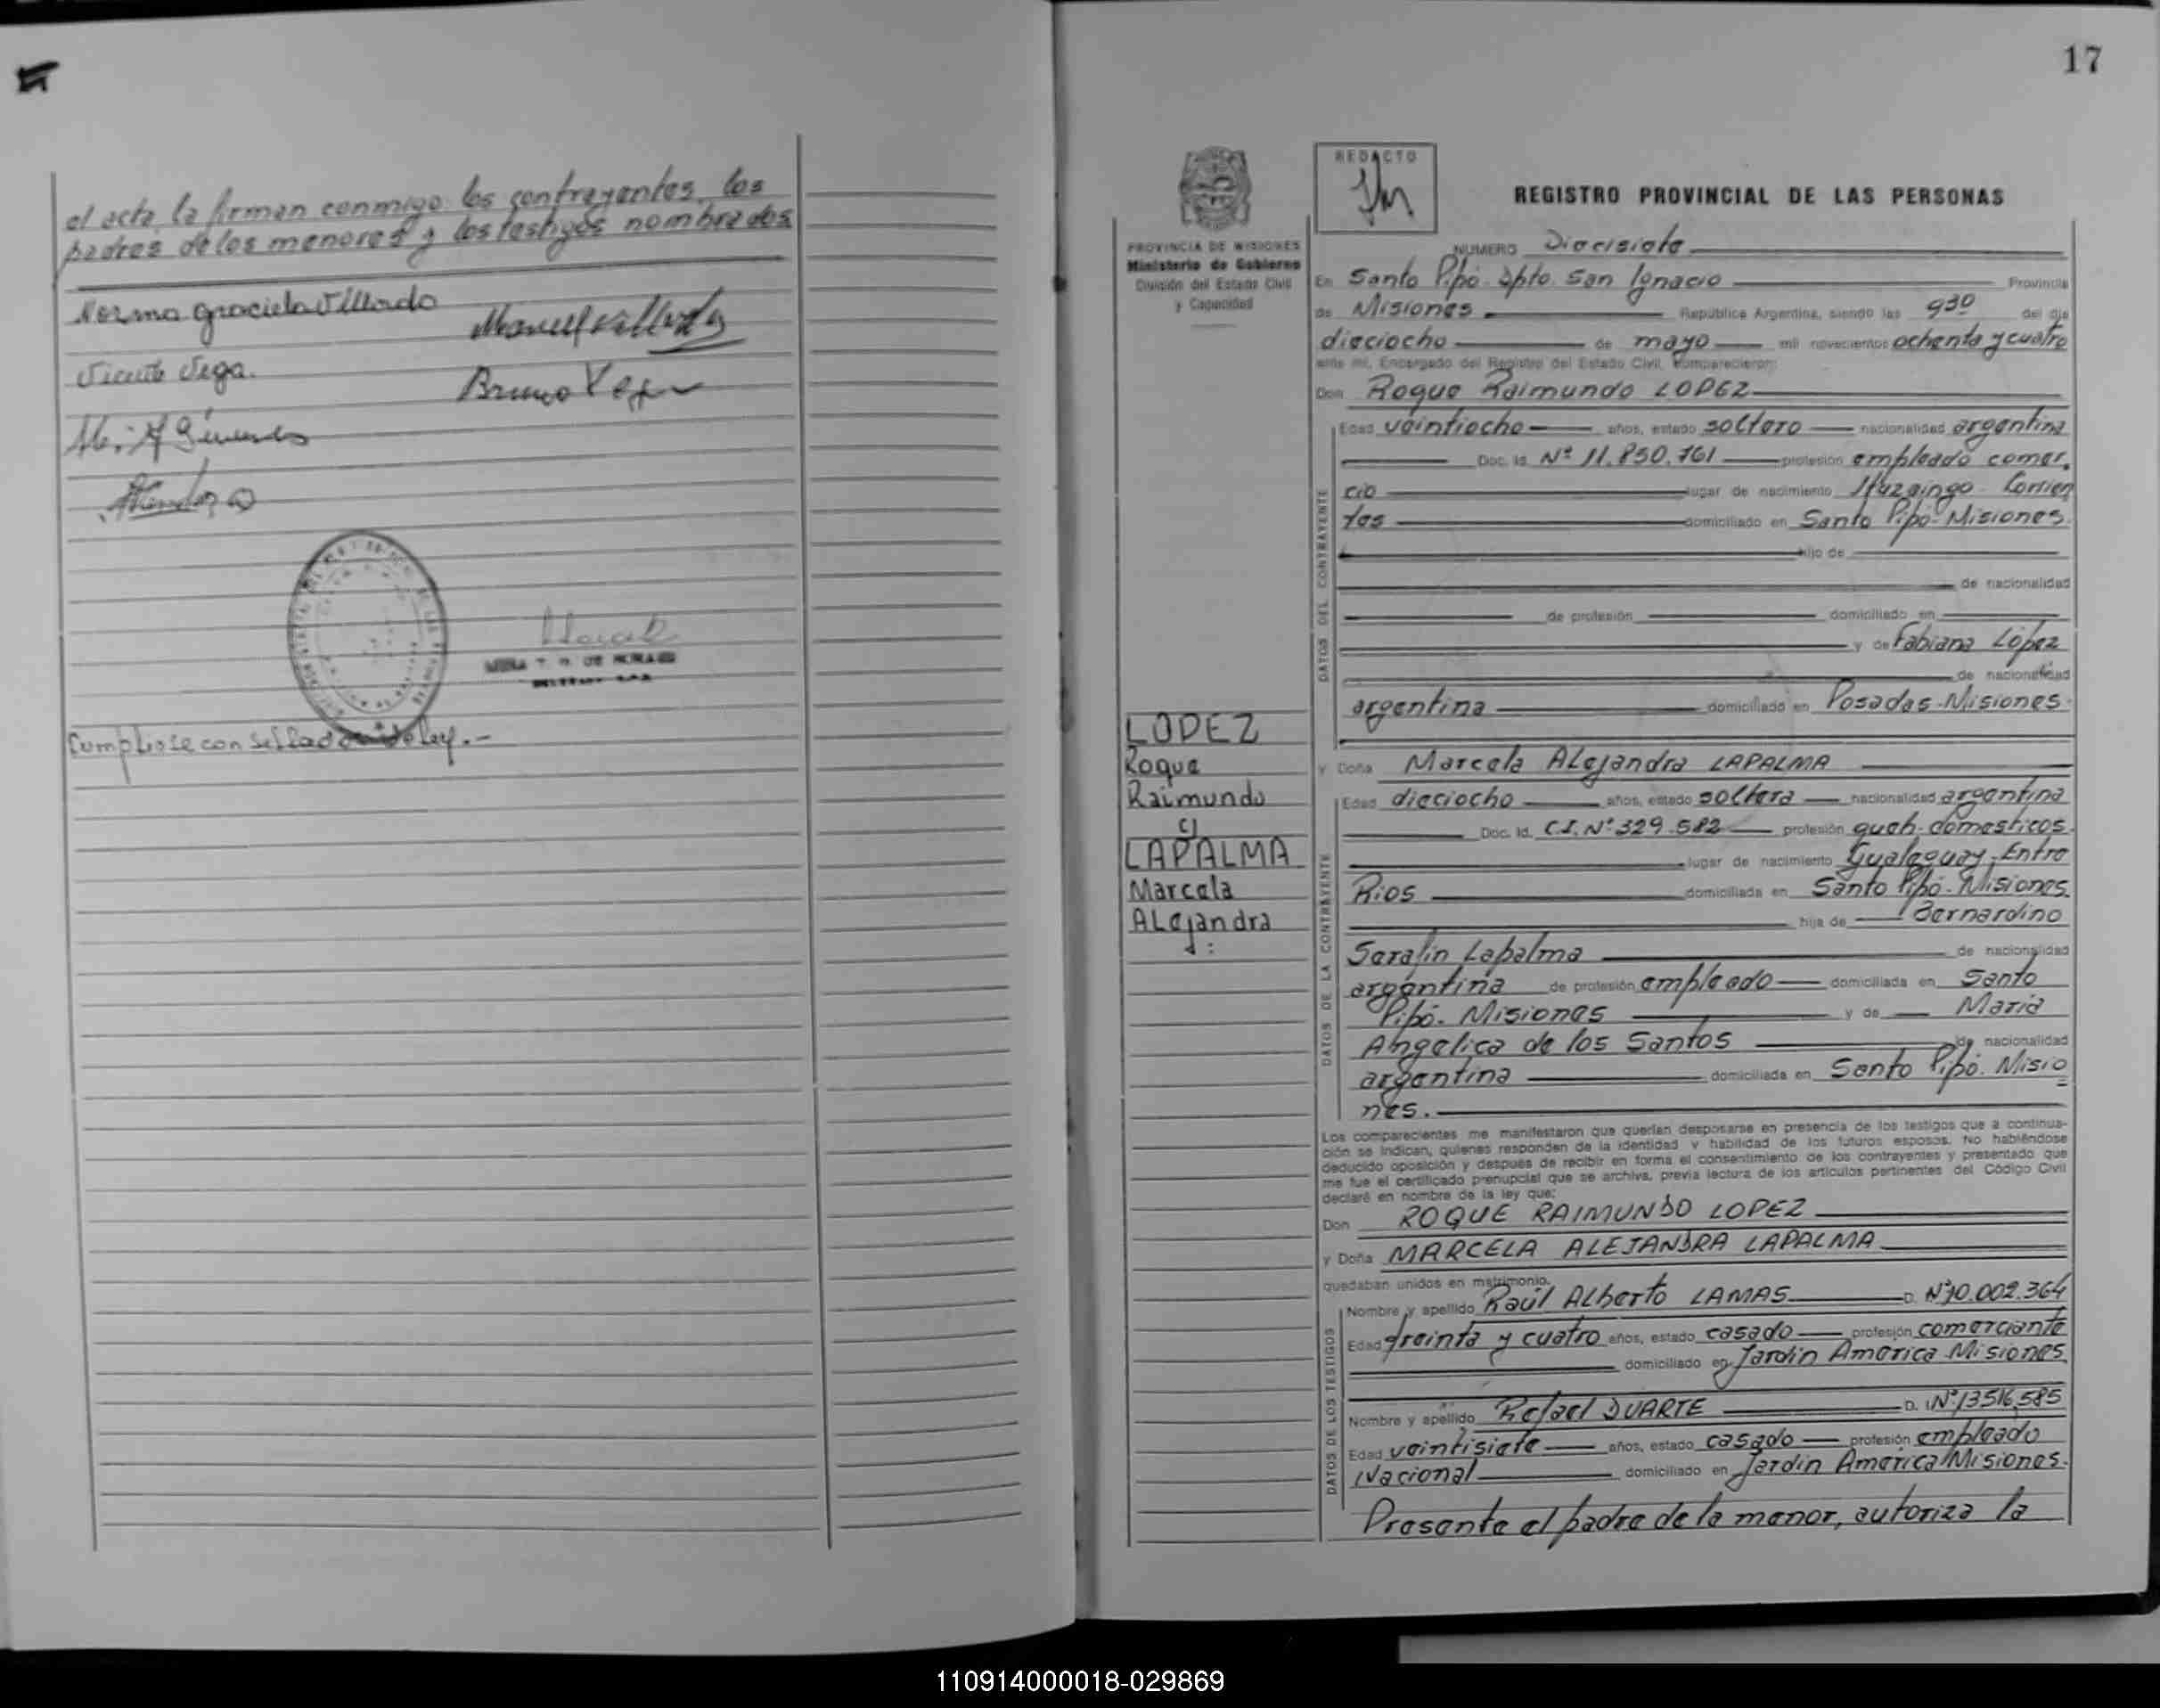 el acta, la firman conmigo los contrayentes, los
padres de los menores y los testigos nombrados
Norma Graciela Villordo
Vicente Vega.
Bruno Vega
Cumpliose con sellado de ley.-
17
REDACTO
PROVINCIA DE MISIONES
Ministerio de Gobierno
División del Estado Civil
y Capacidad
LOPEZ
Roque
Raimundo
c/
LAPALMA
Marcela
ALejandra
REGISTRO PROVINCIAL DE LAS PERSONAS
NUMERO Diecisiete
En Santo Pipó. Dpto. San Ignacio Provincia
de Misiones. República Argentina, siendo las 9 30 del día
dieciocho de mayo mil novecientos ochenta y cuatro
ante mí, Encargado del Registro del Estado Civil, comparecieron:
Don Roque Raimundo LOPEZ
DATOS DEL CONTRAYENTE
Edad veintiocho años, estado soltero nacionalidad argentina
Doc. Id. Nº 11.850.761 profesión empleado comer,
cio lugar de nacimiento Ituzaingo - Corrien
tes domiciliado en Santo Pipó - Misiones.
hijo de
de nacionalidad
de profesión domiciliado en
y de Fabiana López
de nacionalidad
argentina domiciliado en Posadas - Misiones
y Doña Marcela ALejandra LAPALMA
DATOS DE LA CONTRAYENTE
Edad dieciocho años, estado soltera nacionalidad argentina
Doc. Id. C.I. Nº 329.582 profesión queh. domesticos.
lugar de nacimiento Gualeguay - Entre
Rios domiciliada en Santo Pipó - Misiones.
hija de Bernardino
Serafin Lapalma de nacionalidad
argentina de profesión empleado domiciliada en Santo
Pipó. Misiones y de Maria
Angelica de los Santos de nacionalidad
argentina domiciliada en Santo Pipó. Misio
nes.
Los comparecientes me manifestaron que querían desposarse en presencia de los testigos que a continua-
ción se indican, quienes responden de la identidad y habilidad de los futuros esposos. No habiéndose
deducido oposición y después de recibir en forma el consentimiento de los contrayentes y presentado que
me fue el certificado prenupcial que se archiva, previa lectura de los artículos pertinentes del Código Civil
declaré en nombre de la ley que:
Don ROQUE RAIMUNDO LOPEZ
y Doña MARCELA ALEJANDRA LAPALMA
quedaban unidos en matrimonio.
DATOS DE LOS TESTIGOS
Nombre y apellido Raúl ALberto LAMAS D. Nº 10.002.364
Edad treinta y cuatro años, estado casado profesión comerciante
domiciliado en Jardin America Misiones
Nombre y apellido Rafael DUARTE D. Nº 13516,585
Edad veintisiete años, estado casado profesión empleado
Nacional domiciliado en Jardin America Misiones.
Presente el padre de la menor, autoriza la
110914000018-029869